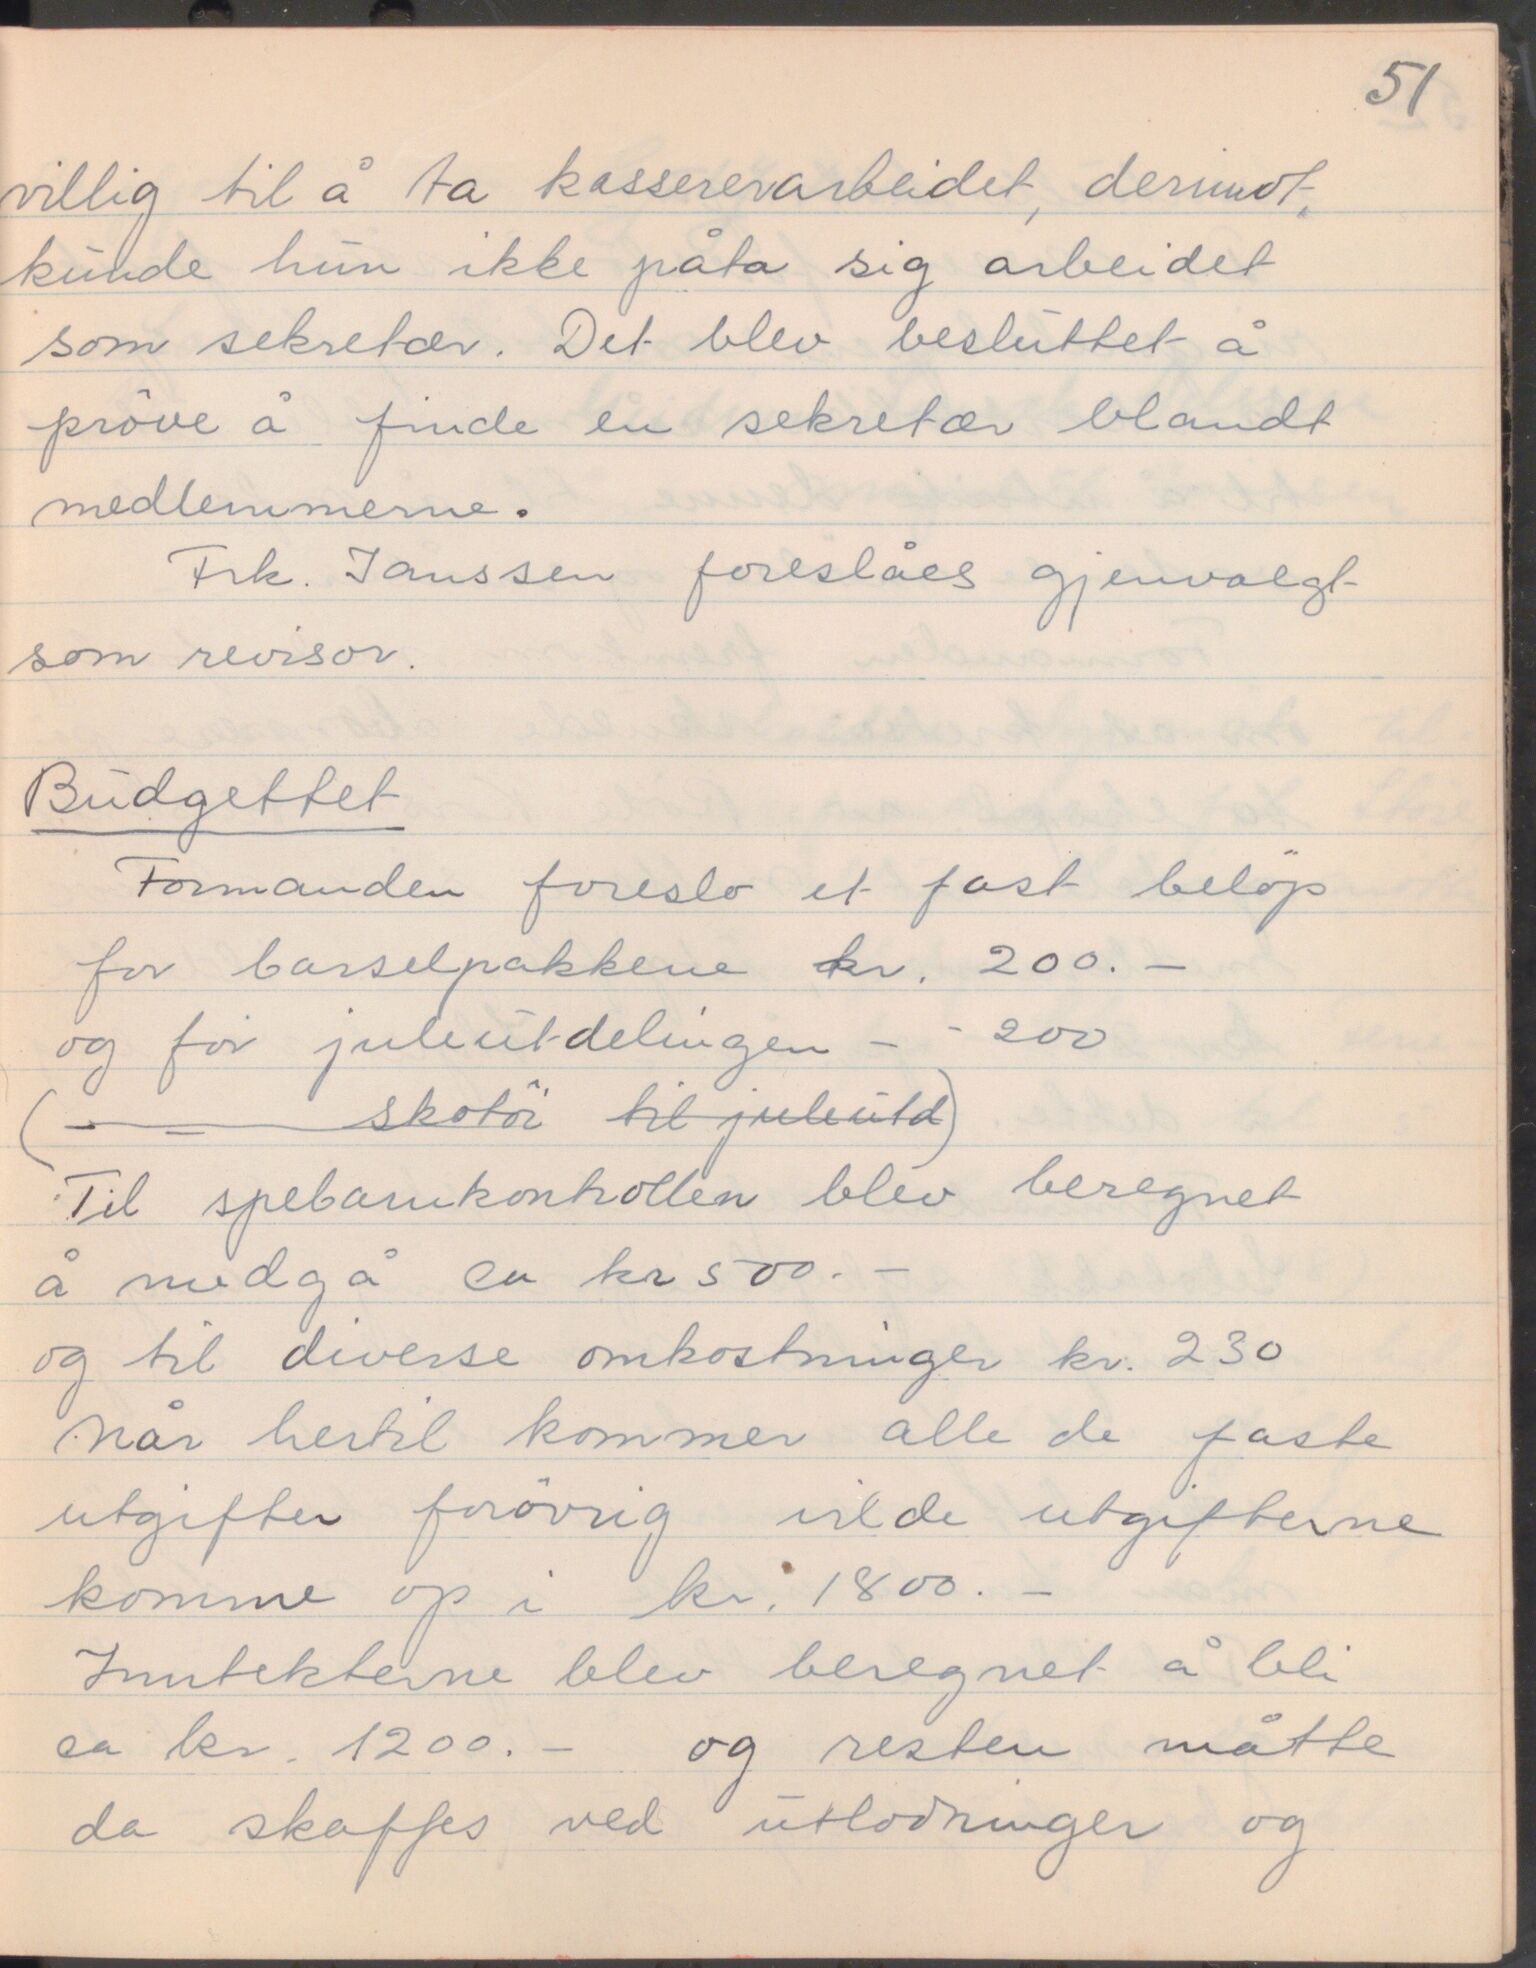 51
villig til å ta kassererarbeidet, derimot
kunde hun ikke påta sig arbeidet
som sekretær. Det blev besluttet å
pröve å finde en sekretær blandt
medlemmerne.
Frk. Janssen foreslåes gjenvalgt
som revisor.
Budgettet
Formanden foreslo et fast belöp
for barselpakkene kr. 200.-
og for juleutdelingen - - 200
(- - skotöi til juleutd)
Til spebarnkontrollen blev beregnet
å medgå ca kr 500.-
og til diverse omkostninger kr. 230
Når hertil kommer alle de faste
utgifter forövrig vilde utgifterne
komme op i kr. 1800.-
Inntekterne blev beregnet å bli
ca kr. 1200.- og resten måtte
da skaffes ved utlodninger og